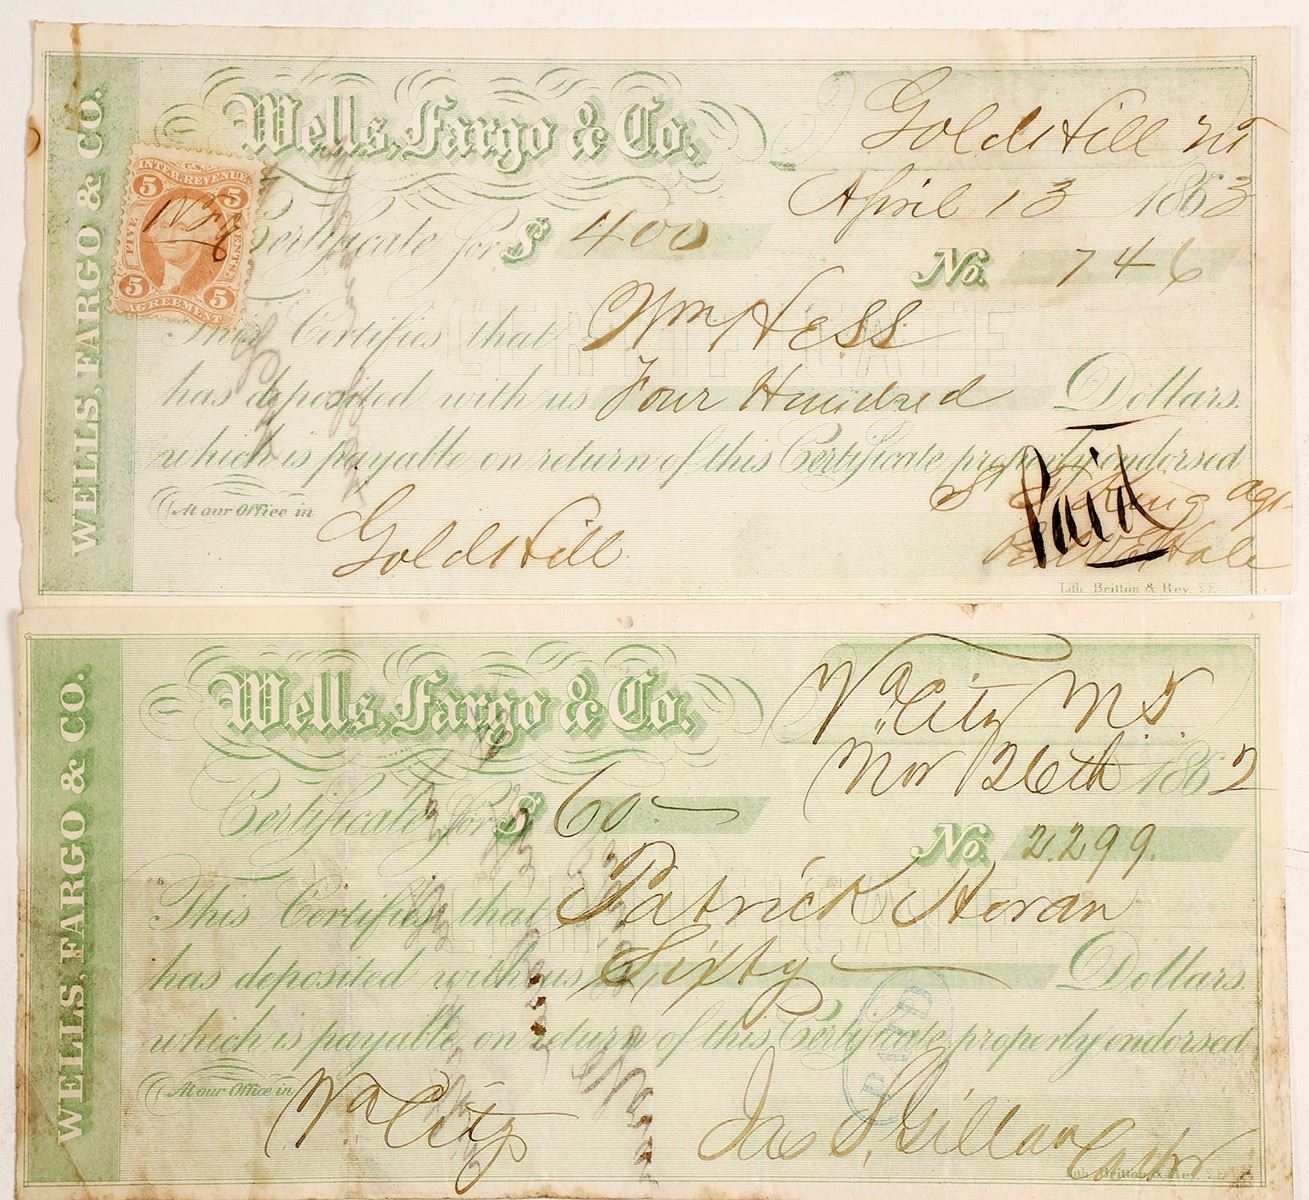 WELLS, FARGO & CO.
Wells, Fargo & Co.
Gold Hill NT
April 13 1863
U.S.
INTER. REVENUE
5 5
FIVE CENTS
5 5
AGREEMENT
Certificate for $ 400
No. 746
This Certifies that Wm Hess
CERTIFICATE
has deposited with us Four Hundred Dollars.
which is payable on return of this Certificate properly endorsed
At our Office in Gold Hill
Paid
agt
Hale
Lith. Britton & Rey. S.F.
WELLS, FARGO & CO.
Wells, Fargo & Co.
Va City N T
Nov 26th 1862
Certificate for $ 60
No. 2299.
This Certifies that Patrick Horan
CERTIFICATE
has deposited with us Sixty Dollars.
which is payable on return of this Certificate properly endorsed
PAID
At our Office in Va City
Jas S. Gillan Cashr
Lith. Britton & Rey. S.F.